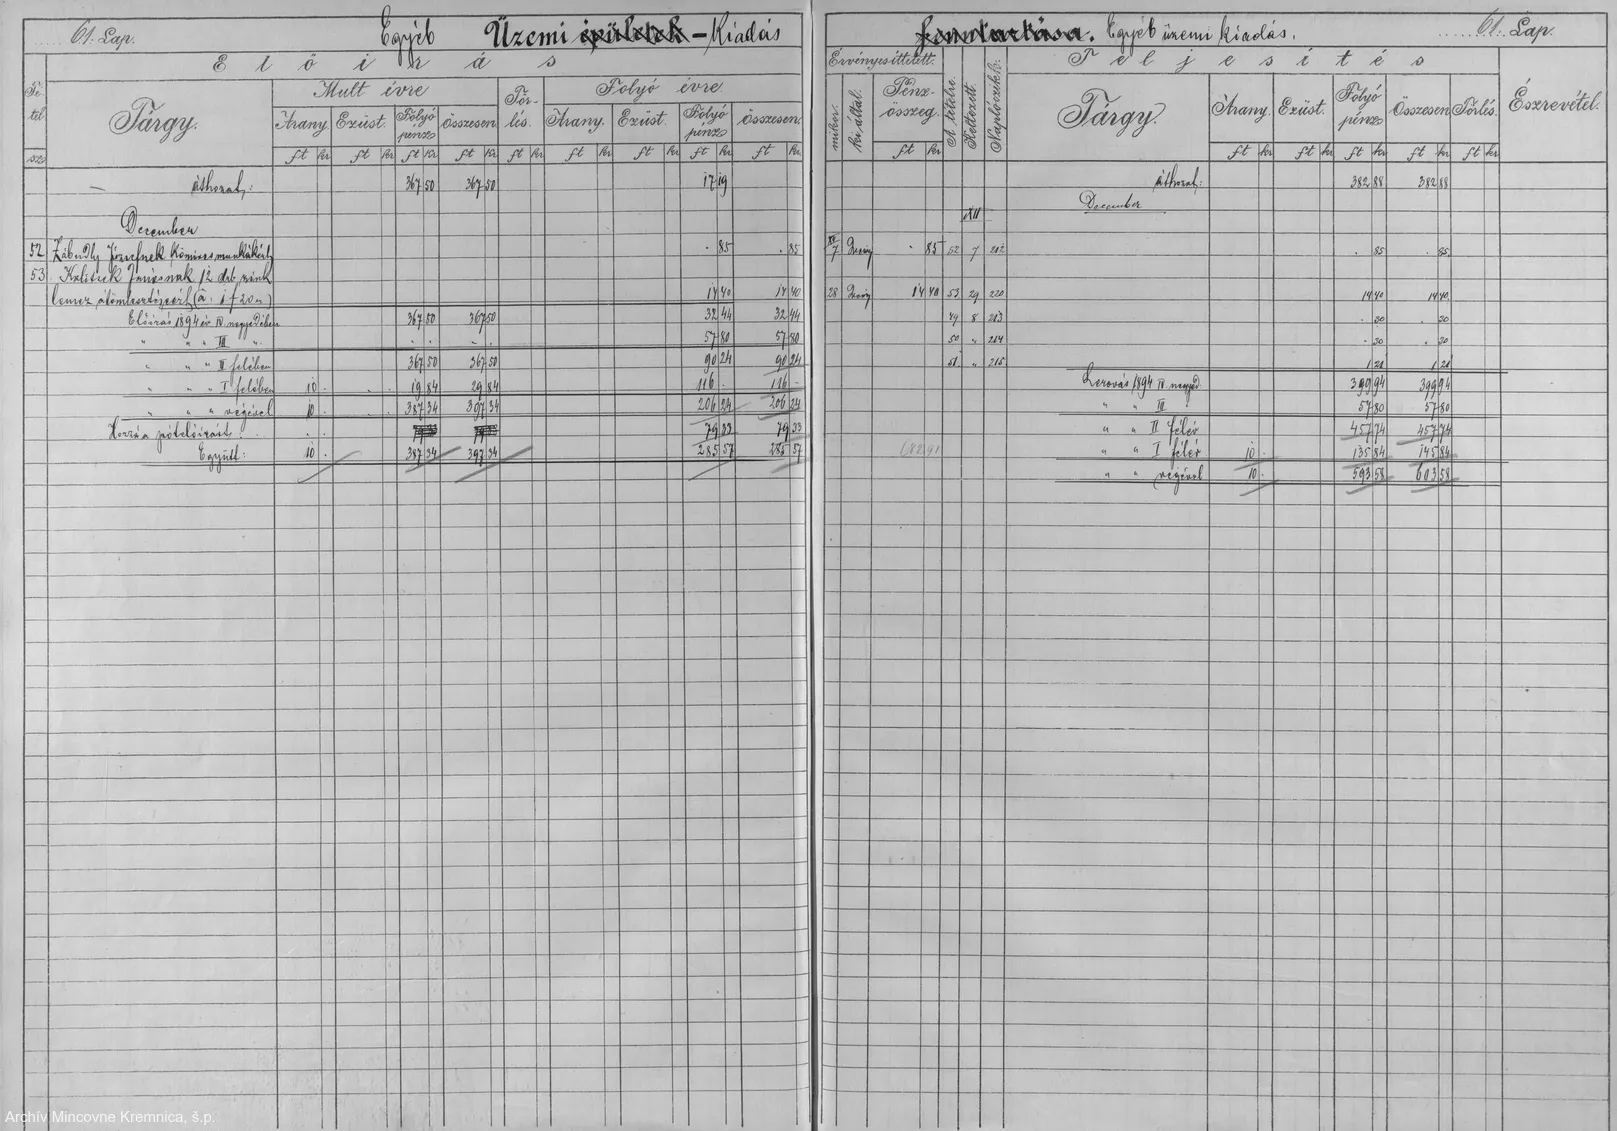 61. Lap.
Egyéb Üzemi épületek - Kiadás
Előirás
Tétel sz.
Tárgy.
Mult évre
Törlés.
Folyó évre.
Arany. Ezüst. Folyó pénz Összesen
Arany. Ezüst. Folyó pénz Összesen.
ft kr ft kr ft kr ft kr ft kr ft kr ft kr ft kr ft kr
áthozat: 367 50 367 50 17 19
December
52 József­nek Kőmives munkákért . 85 . 85
53 12 drb zink
lemez (à 1 f 20 kr) 14 40 14 40
Előirás 1894 év IV negyedében 367 50 367 50 32 44 32 44
" " " III " . . . . 57 80 57 80
" " " II felében 367 50 367 50 90 24 90 24
" " " I felében 10 . . . 19 84 29 84 116 . 116 -
" " " végével 10 . . . 387 34 397 34 206 24 206 24
Hozzá a pótelőirást: . . 79 33 79 33
Együtt: 10 . 387 34 397 34 285 57 285 57
fenntartása. Egyéb üzemi kiadás.
61. Lap.
Érvényesittetett.
Teljesités
mikor. ki által. Pénzösszeg. A tételre. Keltezett Naplóczikk.
Tárgy.
Arany. Ezüst. Folyó pénz Összesen Törlés. Észrevétel.
ft kr ft kr ft kr ft kr ft kr ft kr
áthozat: 382 88 382 88
December
XII
XII
7 . 85 52 7 212 . 85 . 85
28 14 40 53 29 220 14 40 14 40
49 8 213 . 20 . 20
50 " 214 . 20 . 20
51 " 215 1 21 1 21
Lerovás 1894 IV negyed 399 94 399 94
" " III " 57 80 57 80
" " II félév 457 74 457 74
682 91
" " I félév 10 . 135 84 145 84
" " végével 10 . 593 58 603 58
Archív Mincovne Kremnica, š.p.